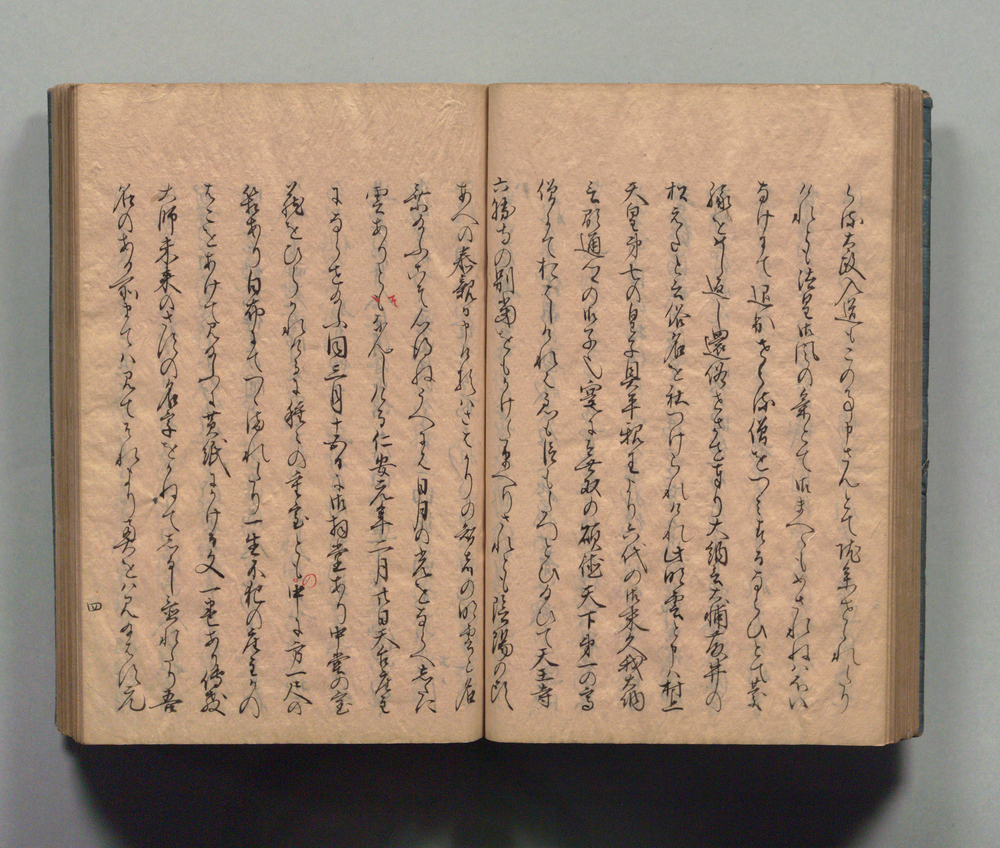 らる太政入道もこの事申さんとて院参せられたり
けれとも法皇御風の気とて御まへへもめされねはほい
なけにて退出せらる僧をつみするならひとて度
縁をめし返し還俗せさせ奉り大納言大輔藤井の
松えたと云俗名を社つけられけれ此明雲と申は村上
天皇第七の皇子具平親王より六代の御末久我大納
言顕通卿の御子也寔に無双の碩徳天下第一の高
僧にておはしけれは君も臣もたつとひ給ひて天王寺
六勝寺の別当をもかけ給へりされとも陰陽の頭
あへの泰親か申けるはさはかりの智者の明雲と名
乗給ふこそ心得ねうへには日月の光をならへしたに
雲ありとそなんしける仁安元年二月廿日天台座主
にならせ給ふ同三月十五日に御拝堂あり中堂の宝
蔵をひらかれけるに種々の重宝ともの中に方一尺の
箱あり白布にてつつまれたり一生不犯の座主かの
はこをあけて見給ふに黄紙にかける文一巻あり伝教
大師未来のさすの名字をかねてしるし置れたり吾
名のある所まては見てそれより奥をは見給はす元
四